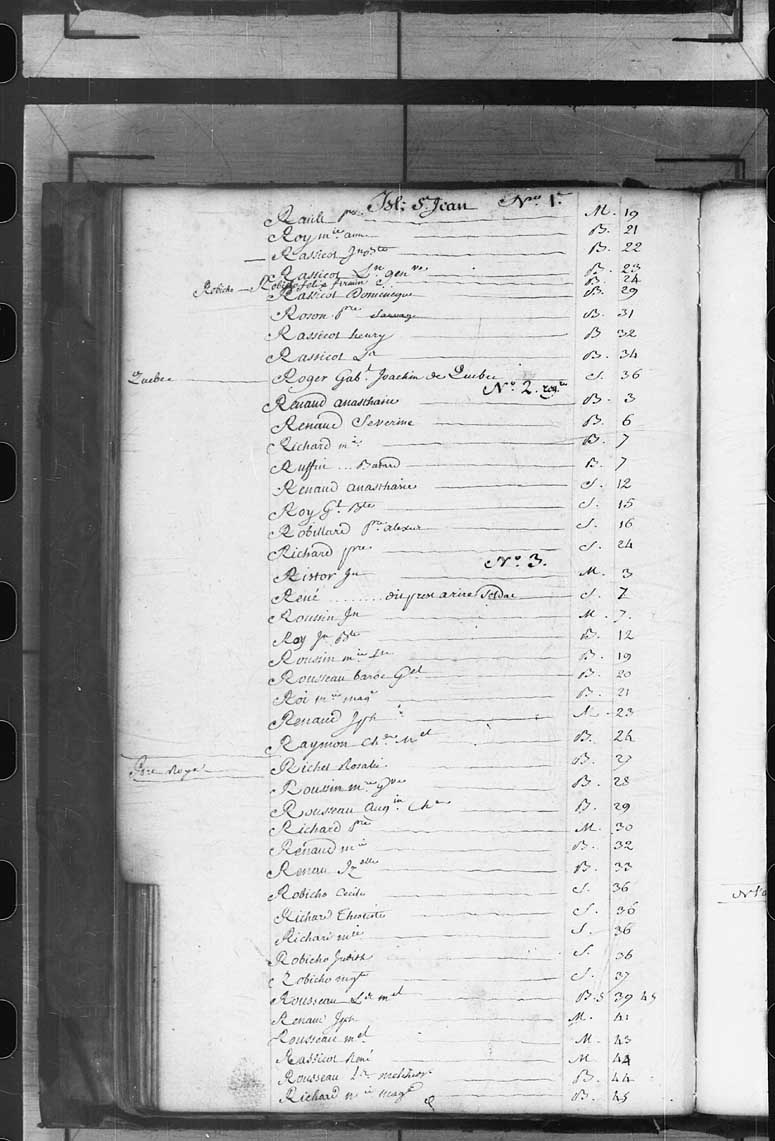 Isl: St Jean No 1er
Rauli pre M. 19
Roy mie ann B. 21
Rassicot Jn Bte B. 22
Rassicot Ls B. 23
Robicho Robicho felix firmin B. 24
Rassicot Dominique B. 29
Roson pre sauvage B. 31
Rassicot henry B 32
Rassicot Ls B. 34
Quebec Roger Gabl Joachim de Quebec S. 36
No 2.
Renaud anasthasie B. 3
Renaud Severine B. 6
Richard me B. 7
Ruffin ... Batard B. 7
Renaud anasthasie S. 12
Roy Gl Bte S. 15
Robillard pre alexis S. 16
Richard pre S. 24
No 3.
Ristor Jn M. 3
René ........ dit prest a rire Soldat S. 7
Roussin Jn M. 7.
Roy Jn Bte B. 12
Roussin mie B. 19
Rousseau barbe B. 20
Roi mie magt B. 21
Renaud Jph M. 23
Raymon Ches mel B. 26
Port Royal Richel Rosalie B. 27
Roussin mie B. 28
Rousseau Augin Che B. 29
Richard pre M. 30
Renaud mie B. 32
Renau B. 33
Robicho Cecile S. 36
Richard Theotiste S. 36
Richard mie S. 36
Robicho Judith S. 36
Robicho mgte S. 37
Rousseau Ls mel B. S 39 45
Renau Jph M. 41
Rousseau mel M. 43
Rassicot René M 44
Rousseau Ls melchior B. 44
Richard mie magte B. 45